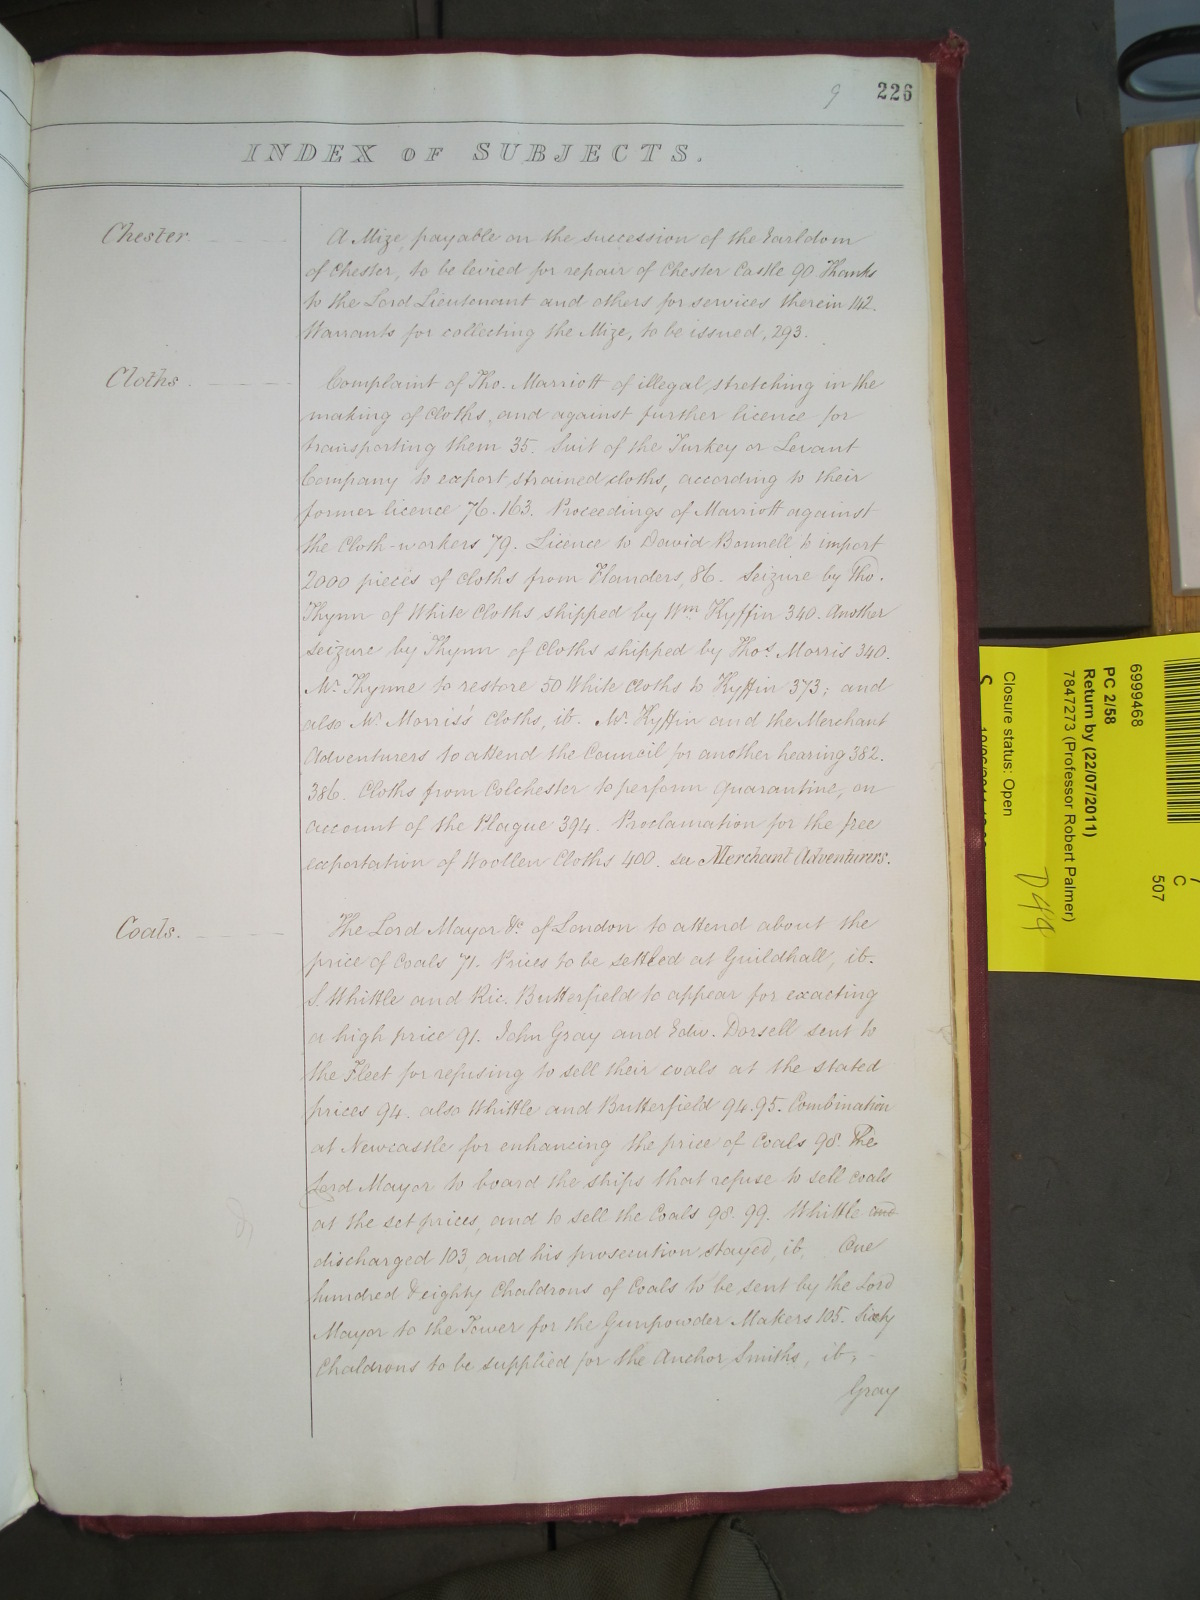 9 226
INDEX OF SUBJECTS.
Chester.
A Mize, payable on the succession of the Earldom
of Chester, to be levied for repair of Chester Castle 90 Thanks
to the Lord Lieutenant and others for services therein 142.
Warrants for collecting the Mize, to be issued, 293.
Cloths.
Complaint of Tho. Marriott of illegal stretching in the
making of Cloths, and against further licence for
transporting them 35. Suit of the Turkey or Levant
Company to export strained cloths, according to their
former licence 76. 163. Proceedings of Marriott against
the Cloth-workers 79. Licence to David Bonnell to import
2000 pieces of Cloths from Flanders, 86. Seizure by Tho.
Thynn of White Cloths shipped by Wm. Kyffin 340. Another
seizure by Thynn of Cloths shipped by Thos. Morris 340.
Mr. Thynne to restore 50 White Cloths to Kyffin 373; and
also Mr. Morris's Cloths, ib. Mr. Kyffin and the Merchant
Adventurers to attend the Council for another hearing 382.
386. Cloths from Colchester to perform Quarantine, on
account of the Plague 394. Proclamation for the free
exportation of Woollen Cloths 400. see Merchant Adventurers.
Coals.
The Lord Mayor &c. of London to attend about the
price of Coals 71. Prices to be settled at Guildhall, ib.
S. Whittle and Ric. Butterfield to appear for exacting
a high price 91. John Gray and Edw. Dorsell sent to
the Fleet for refusing to sell their coals at the stated
prices 94. also Whittle and Butterfield 94. 95. Combination
at Newcastle for enhancing the price of Coals 98. The
Lord Mayor to board the ships that refuse to sell coals
at the set prices, and to sell the Coals 98. 99. Whittle and
discharged 103, and his prosecution stayed, ib. One
hundred & eighty Chaldrons of Coals to be sent by the Lord
Mayor to the Tower for the Gunpowder Makers 105. Sixty
Chaldrons to be supplied for the Anchor Smiths, ib.
Gray
6999468
PC 2/58
Return by (22/07/2011)
7847273 (Professor Robert Palmer)
Closure status: Open
C
507
D49